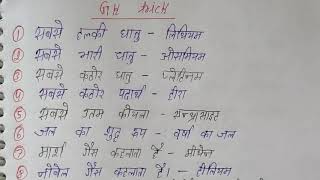 GK trick
① सबसे हल्की धातु - लिथियम
② सबसे भारी धातु - ओसमियम
③ सबसे कठोर धातु - प्लेटिनम
④ सबसे कठोर पदार्थ - हीरा
⑤ सबसे उतम कोयला - एन्थ्रासाइट
⑥ जल का शुद्ध रूप - वर्षा का जल
⑦ मार्श गैस कहलाता है - मीथेन
⑧ नोबेल गैस कहलाता है। - हीलियम